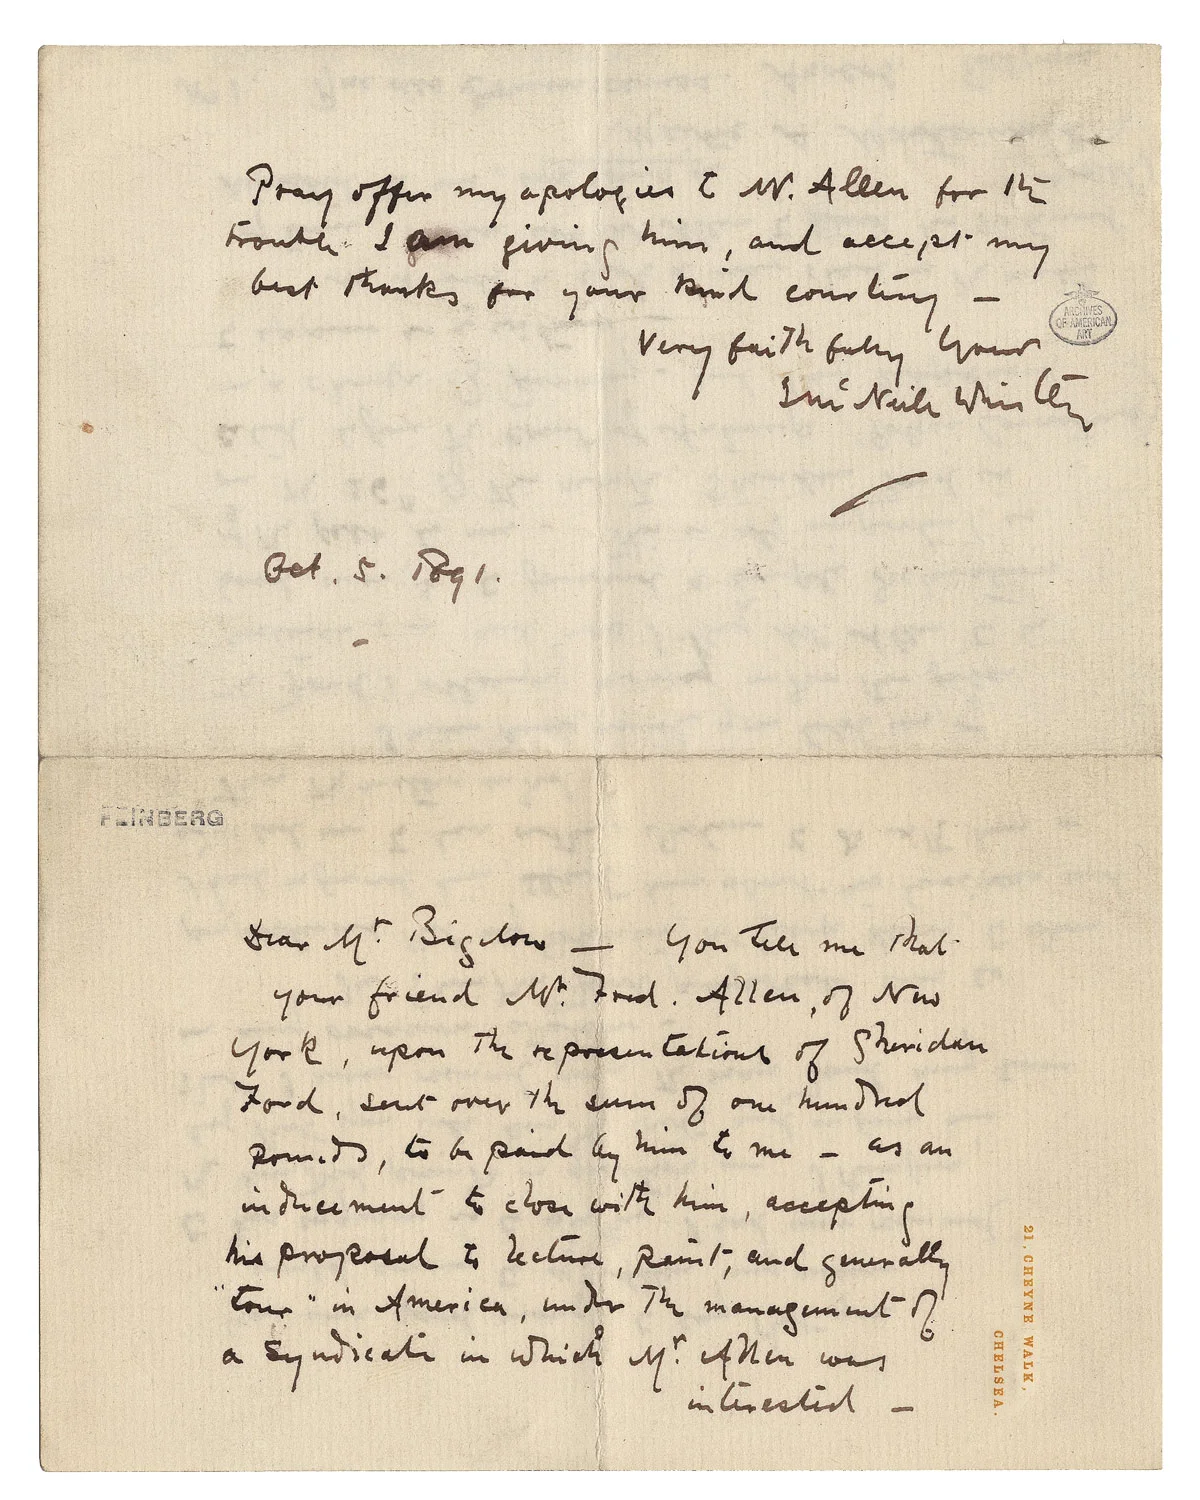 Pray offer my apologies to Mr. Allen for the
trouble I am giving him, and accept my
best thanks for your kind courtesy —
Very faithfully Yours
J McNeill Whistler
ARCHIVES
OF AMERICAN
ART
Oct. 5. 1891.
FEINBERG
Dear Mr. Bigelow — You tell me that
your friend Mr. Fred. Allen, of New
York, upon the representations of Sheridan
Ford, sent over the sum of one hundred
pounds, to be paid by him to me — as an
inducement to close with him, accepting
his proposal to lecture, paint, and generally
"tour" in America, under the management of
a Syndicate in which Mr. Allen was
interested —
21, CHEYNE WALK,
CHELSEA.